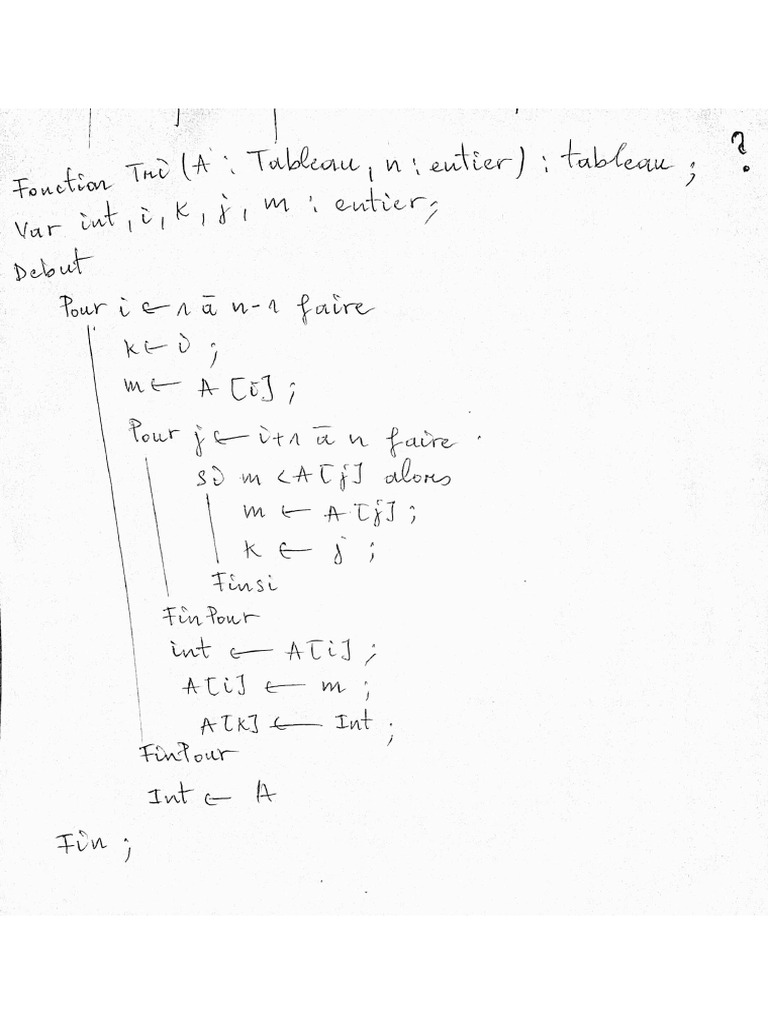 Fonction Tri (A : Tableau, n : entier) : tableau ; ?
Var int, i, k, j, m : entier;
Debut
Pour i ← 1 à n-1 faire
k ← i ;
m ← A [i] ;
Pour j ← i+1 à n faire
si m < A[j] alors
m ← A[j] ;
k ← j ;
Finsi
FinPour
int ← A[i] ;
A[i] ← m ;
A[k] ← Int ;
FinPour
Int ← A
Fin ;